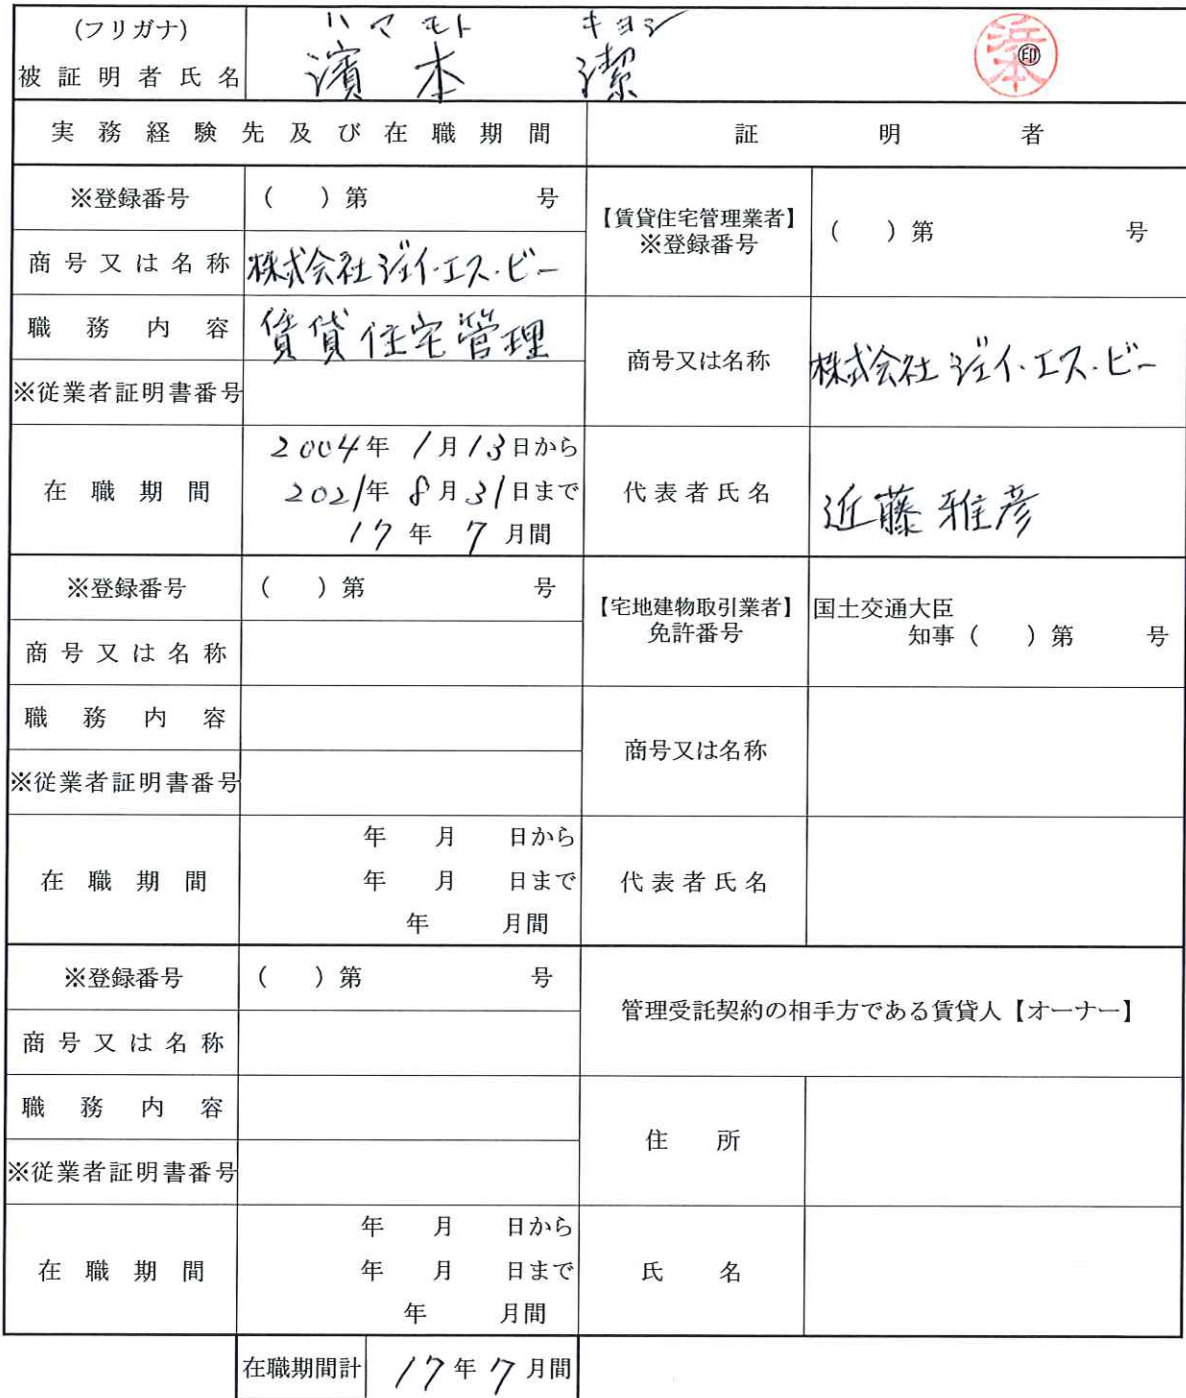 (フリガナ) ハマモト キヨシ
被証明者氏名 濱本 潔 浜本 ㊞
実務経験先及び在職期間 証明者
※登録番号 ( )第 号
【賃貸住宅管理業者】
※登録番号 ( )第 号
商号又は名称 株式会社ジェイ・エス・ビー
職務内容 賃貸住宅管理
商号又は名称 株式会社ジェイ・エス・ビー
※従業者証明書番号
在職期間
2004年 1月13日から
2021年 8月31日まで
17年 7月間
代表者氏名 近藤雅彦
※登録番号 ( )第 号
【宅地建物取引業者】
免許番号
国土交通大臣
知事( )第 号
商号又は名称
職務内容
商号又は名称
※従業者証明書番号
在職期間
年 月 日から
年 月 日まで
年 月間
代表者氏名
※登録番号 ( )第 号
管理受託契約の相手方である賃貸人【オーナー】
商号又は名称
職務内容
住所
※従業者証明書番号
在職期間
年 月 日から
年 月 日まで
年 月間
氏名
在職期間計 17年7月間